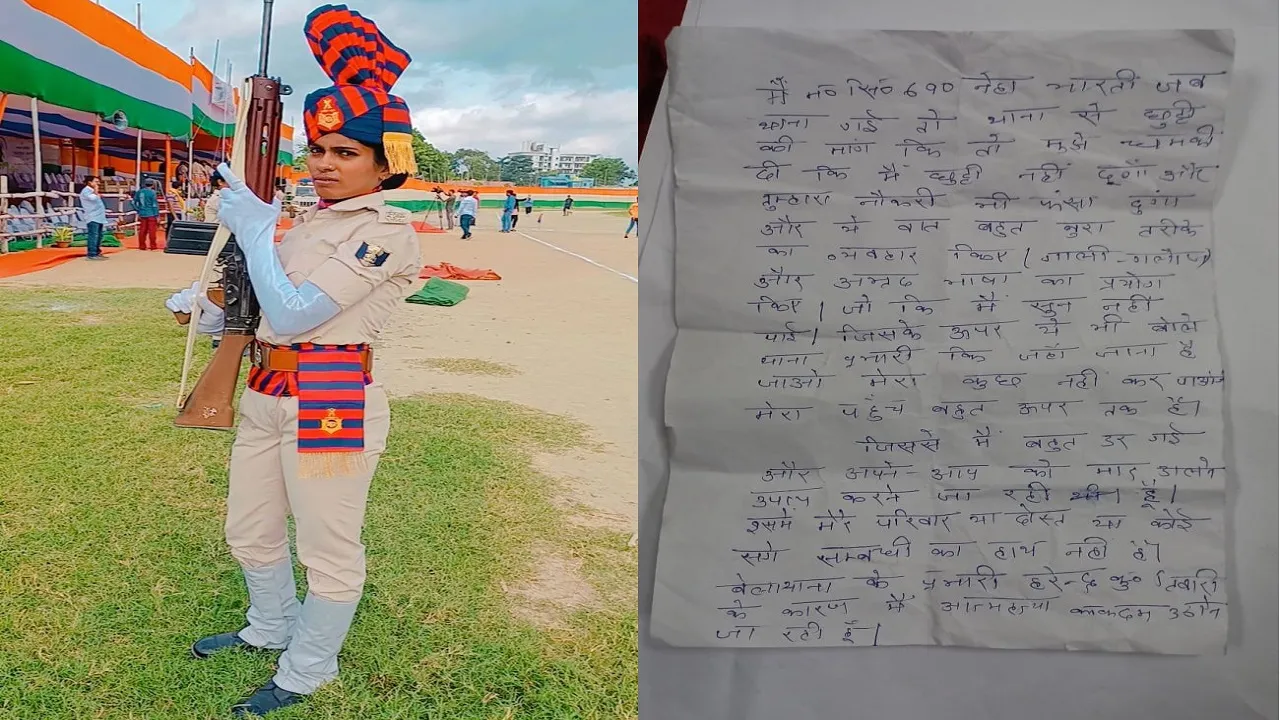 मैं म० सि० 690 नेहा भारती जब
थाना गई तो थाना से छुट्टी
की मांग कि तो मुझे धमकी
दी कि मै छुट्टी नहीं दूगाँ और
तुम्हारा नौकरी भी फंसा दुंगा
और ये बात बहुत बुरा तरीके
का व्यवहार किए (गाली-गलौज)
और अभद्र भाषा का प्रयोग
किए / जो कि मैं सुन नही
पाई / जिसके ऊपर ये भी बोले
थाना प्रभारी कि जहाँ जाना है
जाओ मेरा कुछ नहीं कर पाओगे
मेरा पहुँच बहुत ऊपर तक है।
जिससे मैं बहुत डर गई
और अपने-आप को मार डालने
करने जा रही हूँ।
इसमे मेरे परिवार या दोस्त या कोई
सगे सम्बन्धी का हाथ नही है।
बेलाथाना के प्रभारी हरेन्द्र कु० तिवारी
के कारण मैं आत्महत्या का कदम उठाने
जा रही हूँ।